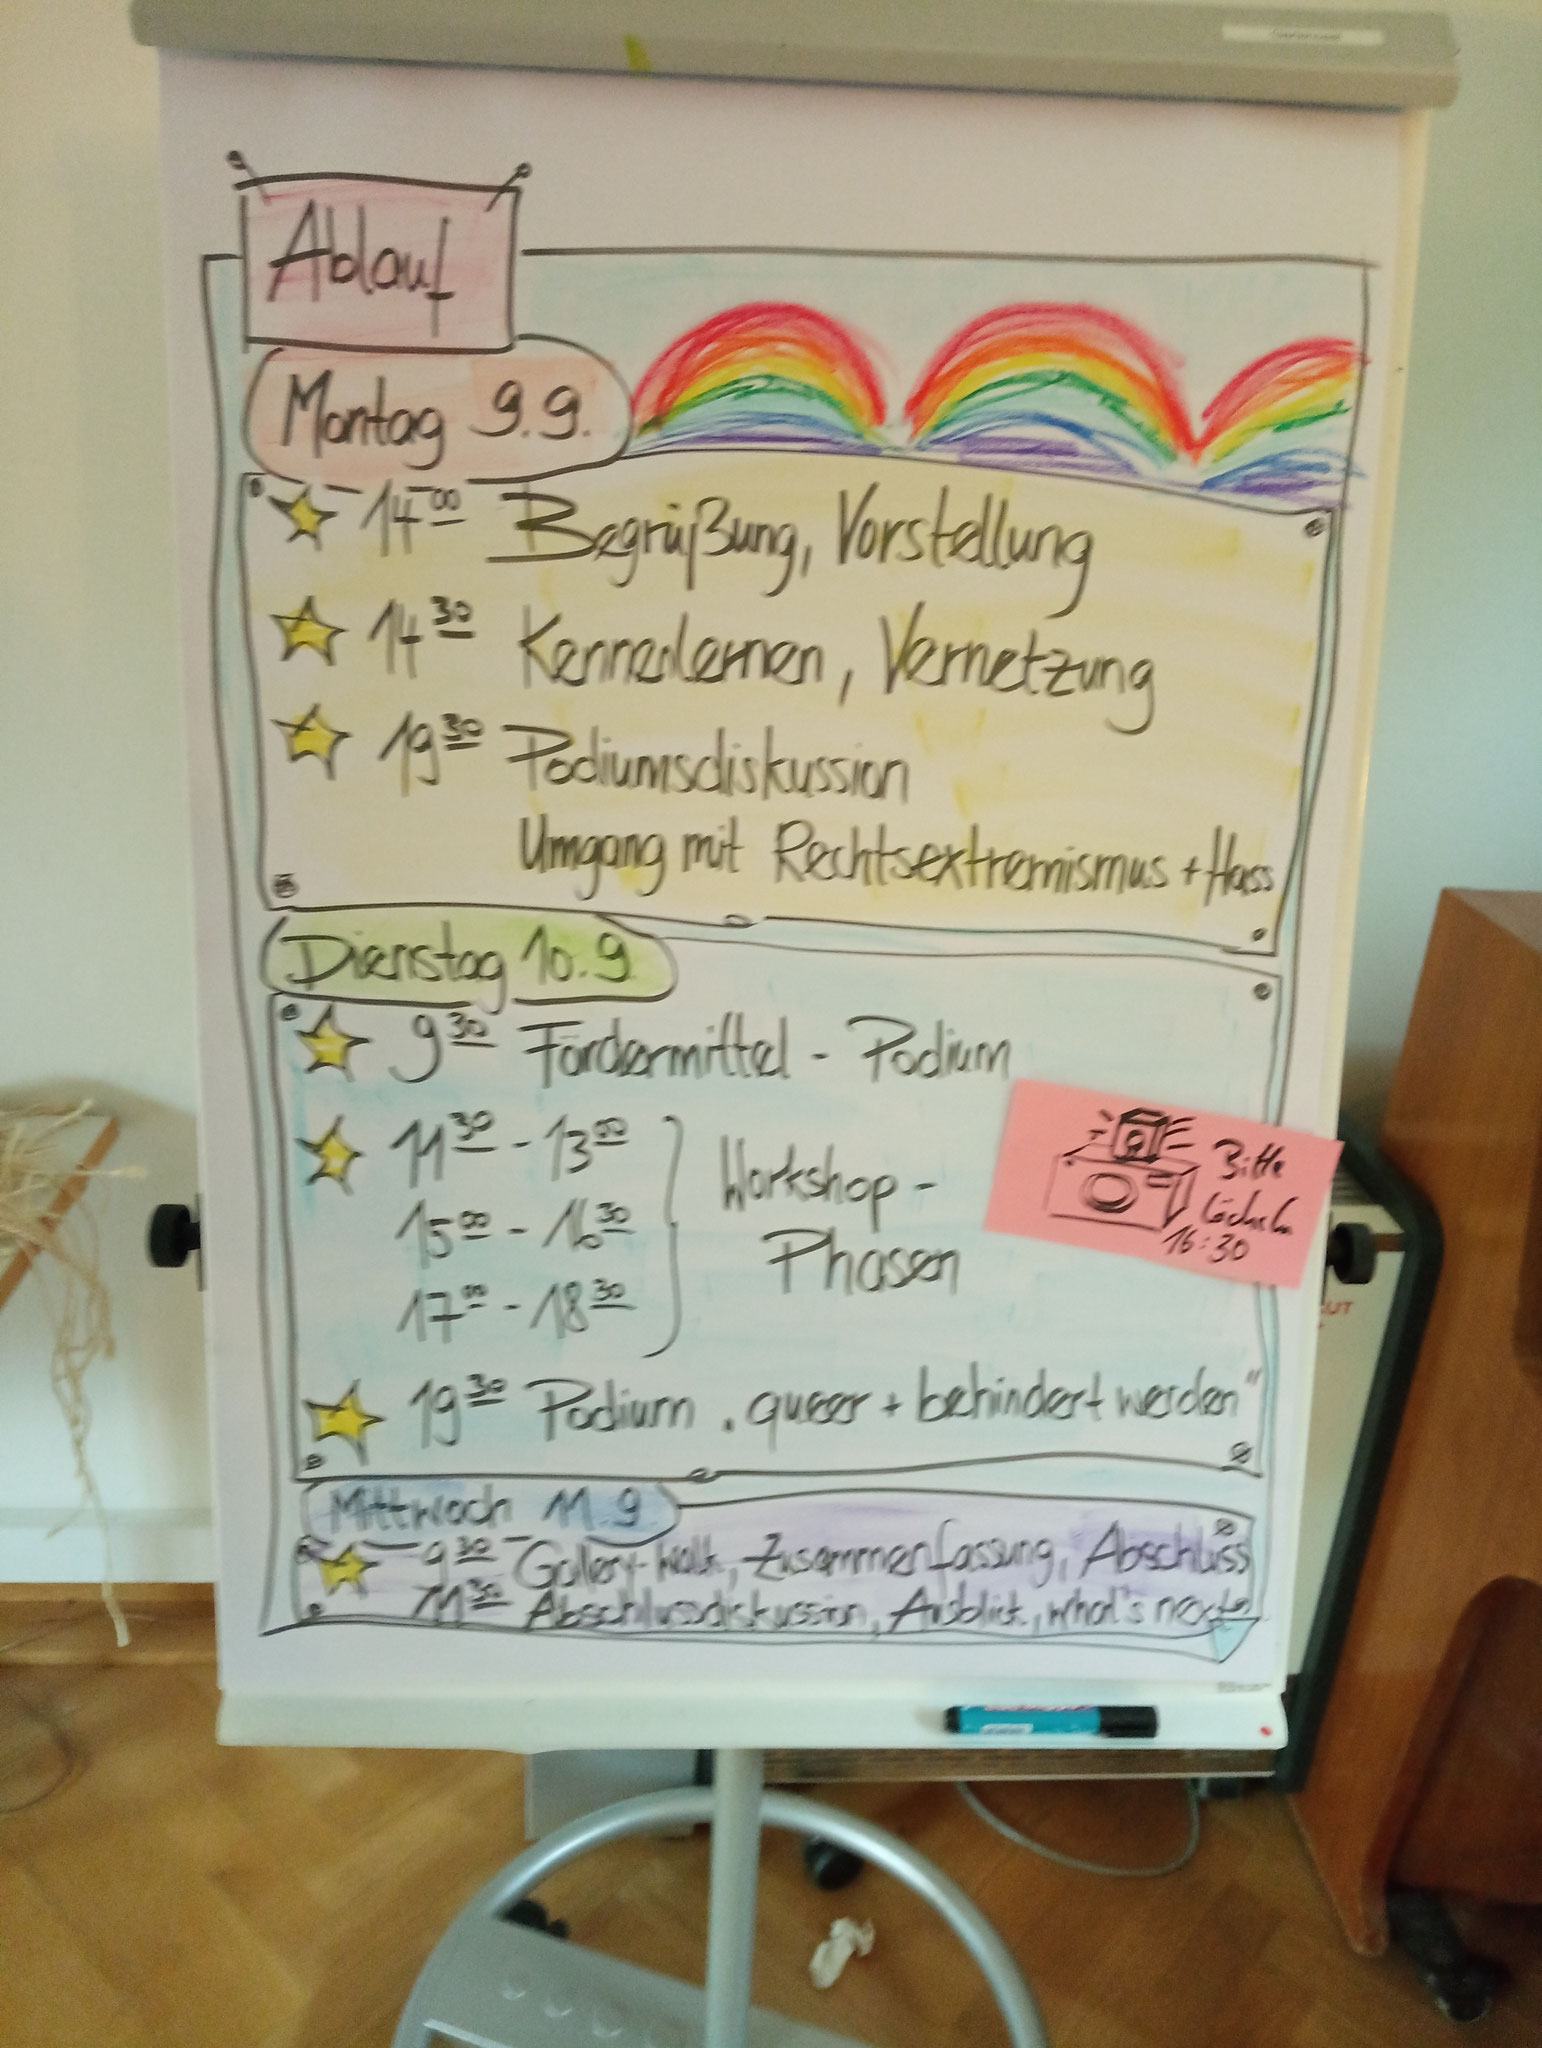 Ablauf
Montag 9.9.
14 00 Begrüßung, Vorstellung
14 30 Kennenlernen, Vernetzung
19 30 Podiumsdiskussion
Umgang mit Rechtsextremismus + Hass
Dienstag 10.9.
9 30 Fördermittel - Podium
11 30 - 13 00
15 00 - 16 30
17 00 - 18 30
Workshop -
Phasen
Bitte
lächeln
16:30
19 30 Podium „queer + behindert werden“
Mittwoch 11.9.
9 30 Gallery-Walk, Zusammenfassung, Abschluss
11 30 Abschlussdiskussion, Ausblick, what's next